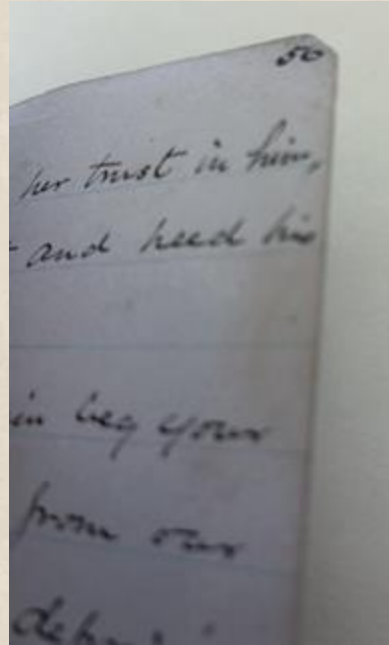 50
her trust in him,
and heed his
in beg your
from our